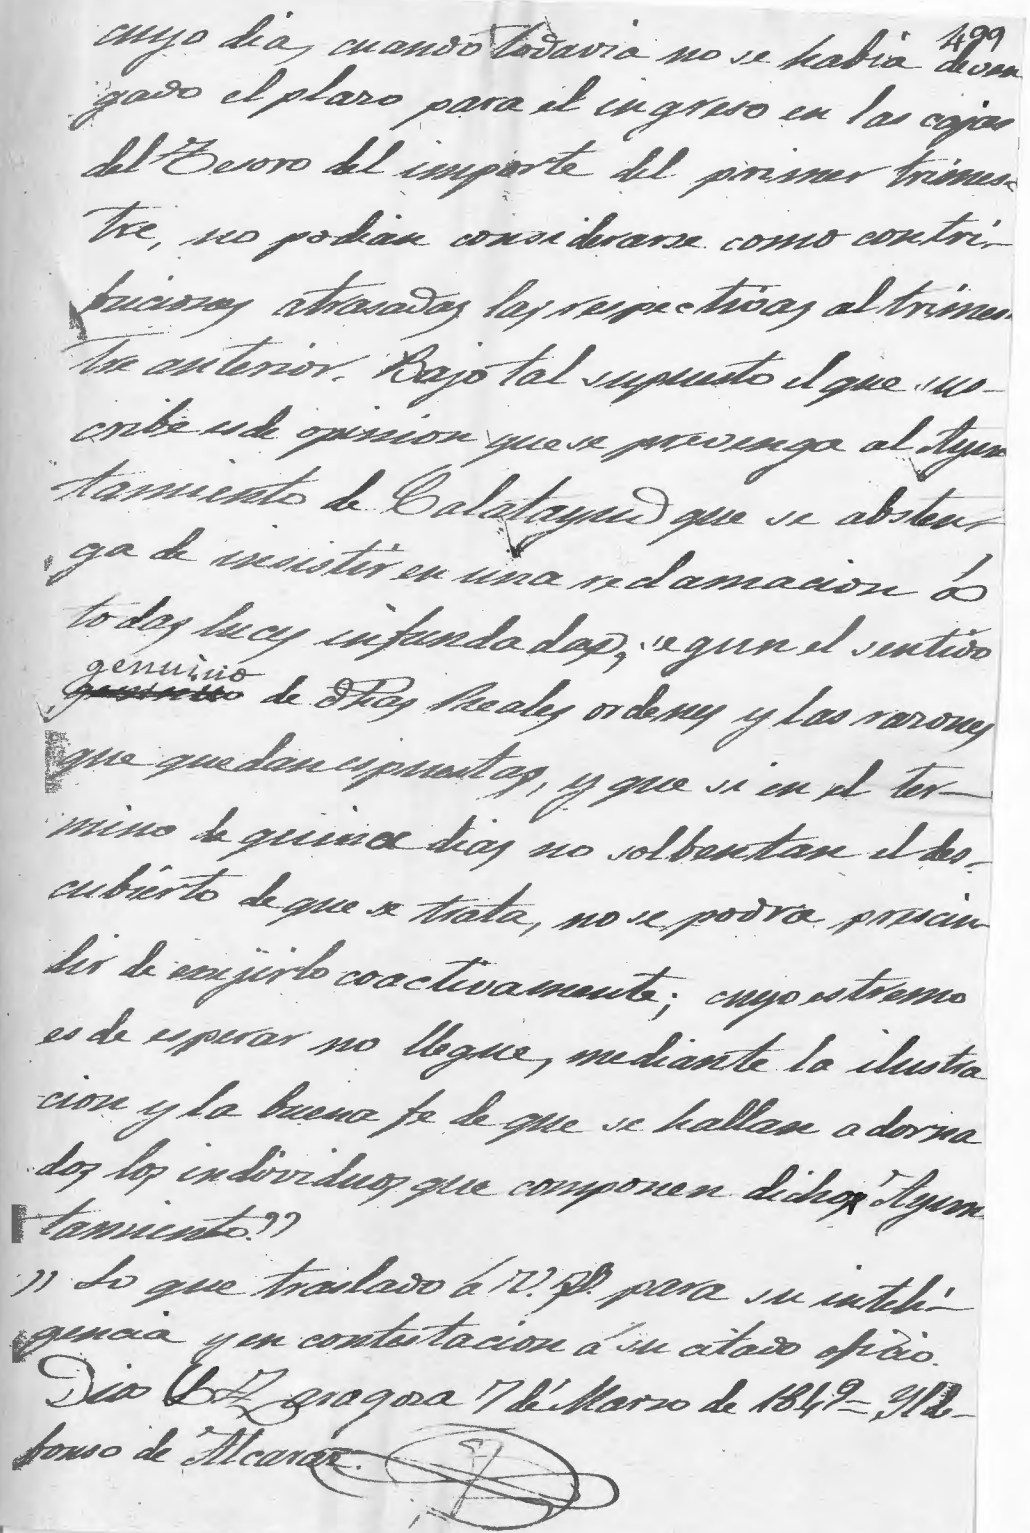 499
cuyo dia, cuando todavia no se habia deven
gado el plazo para el ingreso en las cajas
del Tesoro del importe del primer trimes-
tre, no podian considerarse como contri-
buciones atrasadas las respectivas al trimes-
tre anterior. Bajo tal supuesto el que sus-
cribe es de opinion que se prevenga al Ayun
tamiento de Calatayud que se absten-
ga de insistir en una reclamacion á
todas luces infundadas, segun el sentido
genuino
de dhas Reales ordenes y las razones
que quedan espuestas, y que si en el ter-
mino de quince dias no solbentan el des-
cubierto de que se trata, no se podra prescin
dir de exijirlo coactivamente; cuyo estremo
es de esperar no llegue, mediante la ilustra
cion y la buena fe de que se hallan adorna
dos los individuos que componen dicho Ayun
tamiento."
" Lo que traslado á V. para su inteli-
gencia y en contestacion á su citado oficio.
Dios Zaragoza 7 de Marzo de 1849 - Ylde-
fonso de Alcaraz.